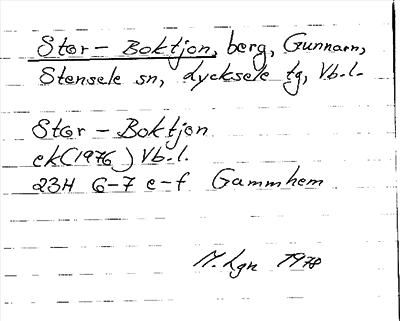 Stor-Boktjon, berg, Gunnarn,
Stensele sn, Lycksele tg, Vb.l.
Stor-Boktjon
ek(1976) Vb.l.
23H 6-7 e-f Gammhem
M. Lgn 1978